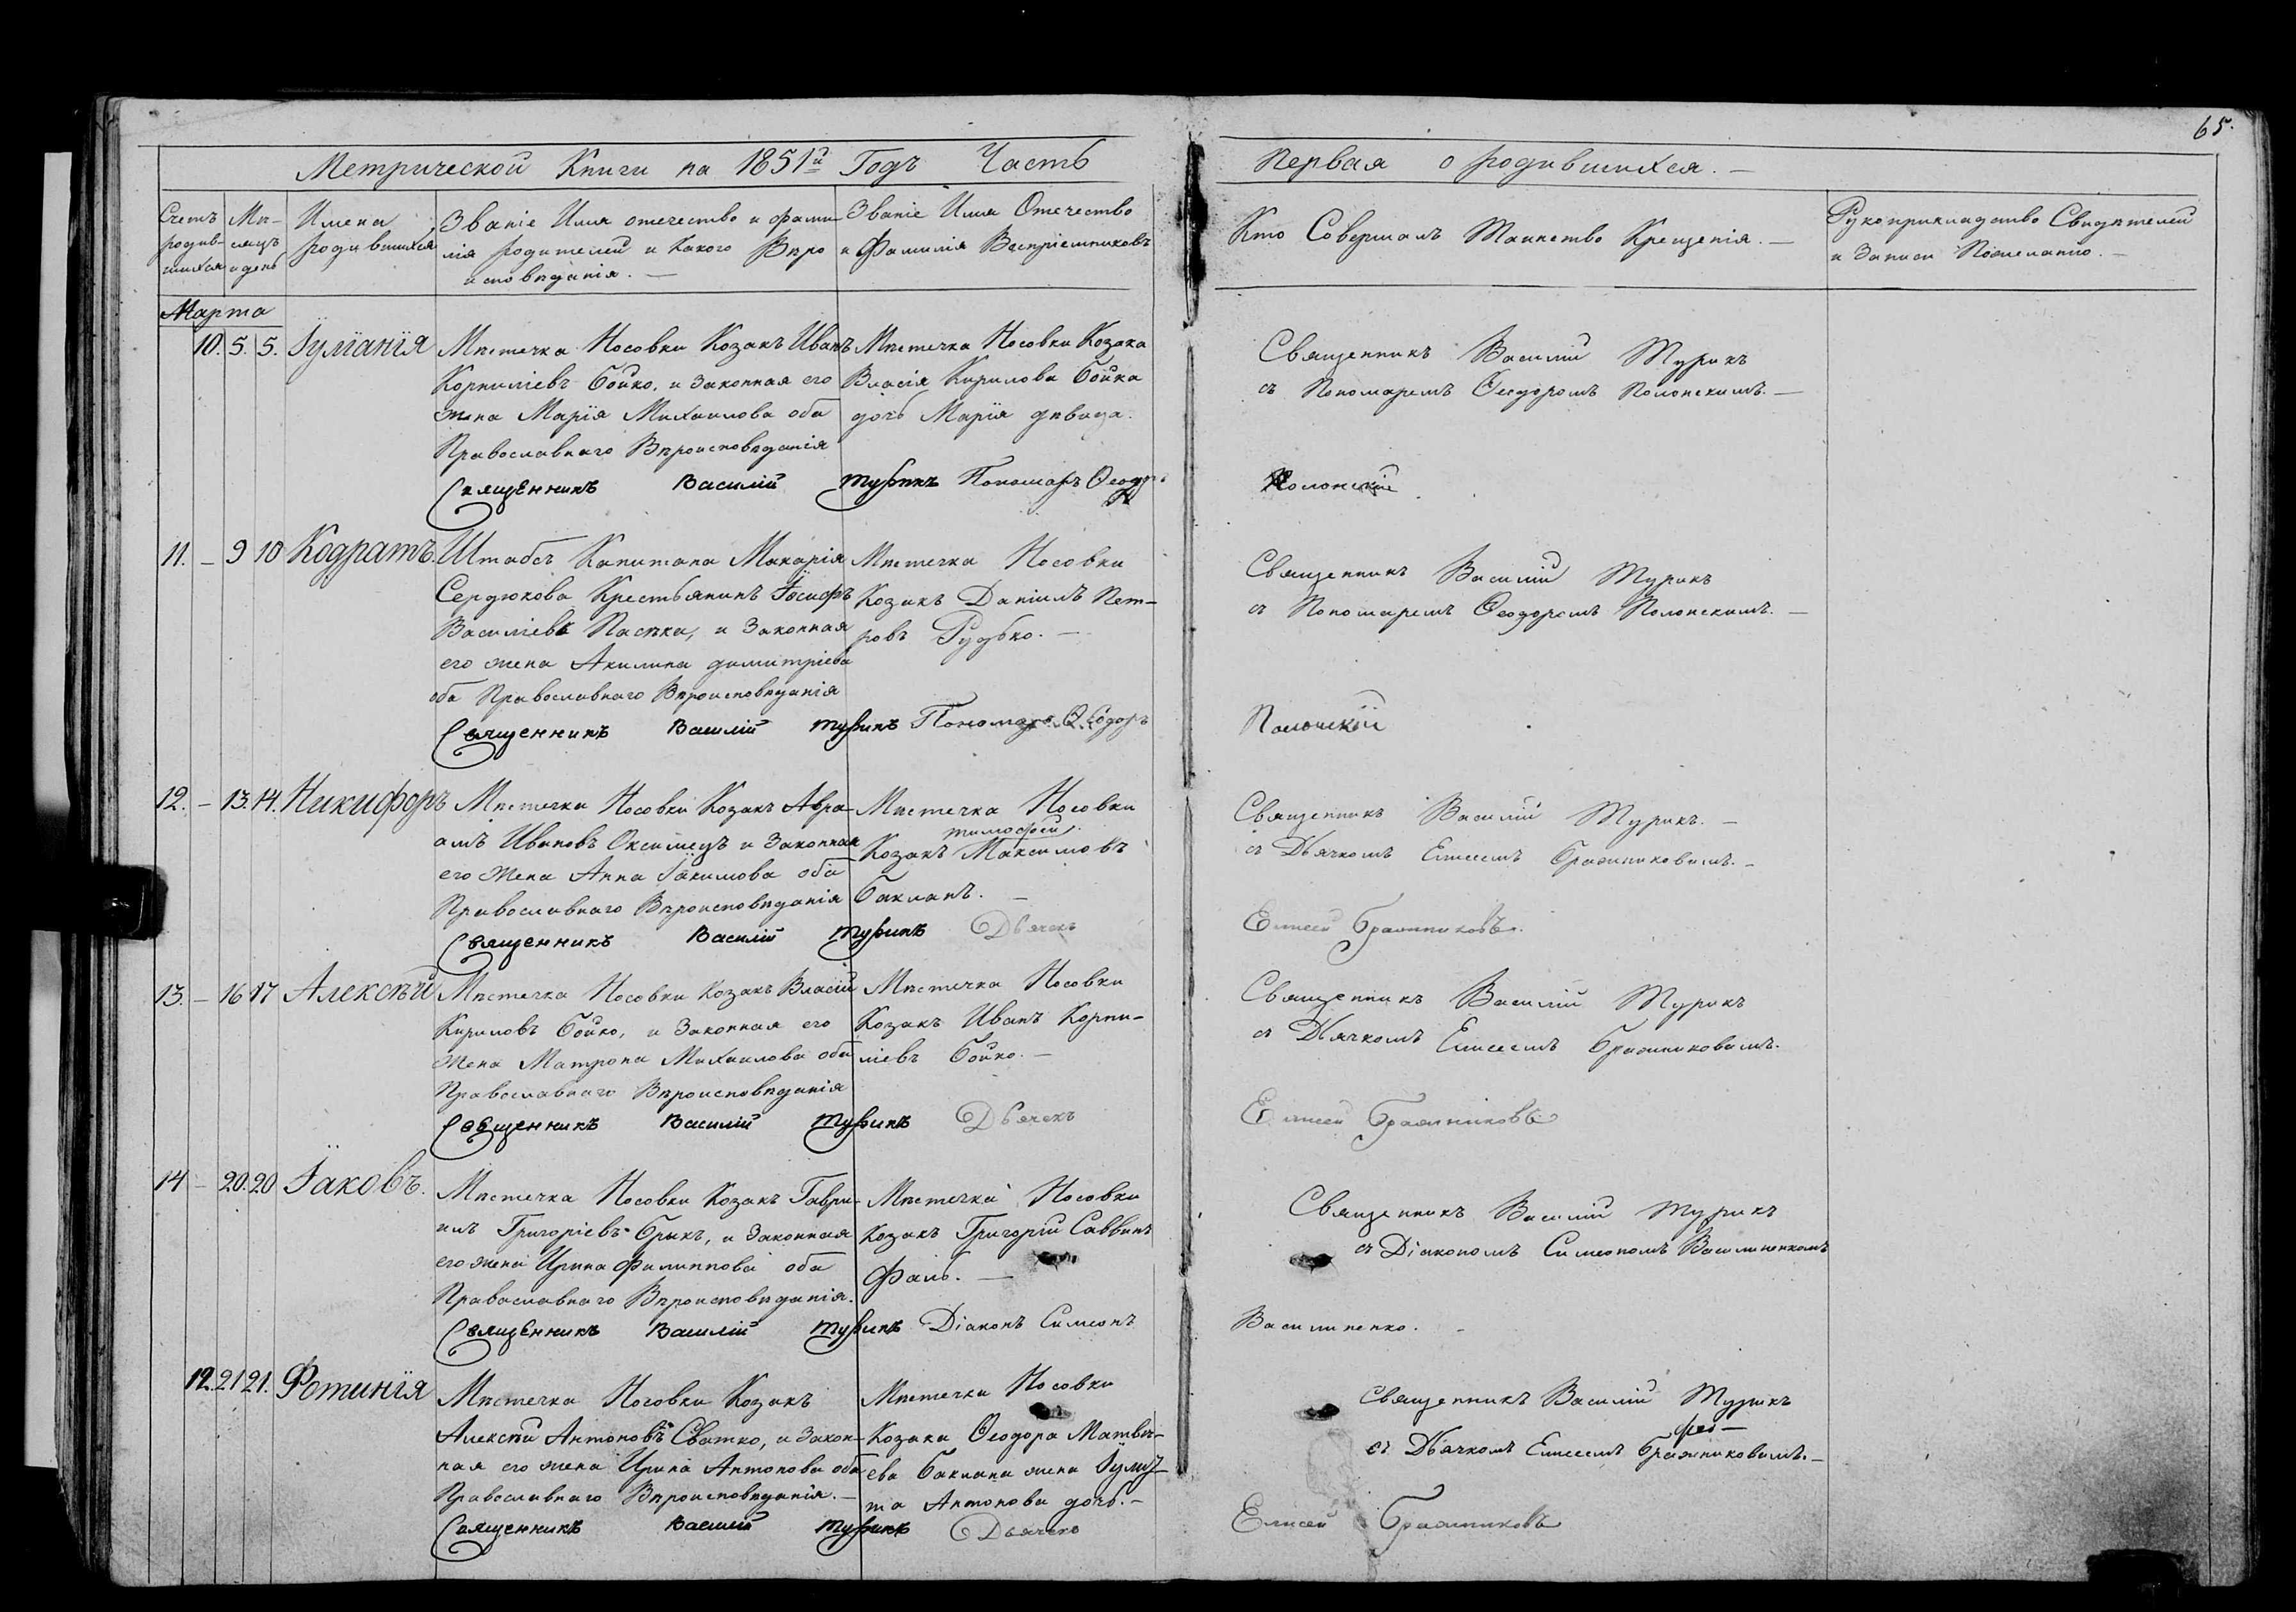 65.
Метрической Книги на 1851й Годъ Часть Первая о родившихся. —
Счетъ родив-шихся
Мѣ-сяцъ и день
Имена родившихся
Званіе Имя отечество и фами-
лія родителей и какого Вѣро
исповѣданія. —
Званіе Имя Отечество
и Фамилія Воспріемниковъ
Кто Совершалъ Таинство Крещенія. —
Рукоприкладство Свидѣтелей
и Записи Пожеланію. —
Марта
10. 5. 5. Іуліанія
Мѣстечка Носовки Козакъ Иванъ
Корниліевъ Бойко, и Законная его
жена Марія Михаилова оба
Православнаго Вѣроисповѣданія
Мѣстечка Носовки Козака
Власія Кирилова Бойка
дочь Марія дѣвица.
Священникъ Василій Турикъ
съ Пономаремъ Ѳеодоромъ Полонскимъ. —
Священникъ Василій Турикъ Пономарь Ѳеодоръ Полонскій
11. — 9 10 Кодратъ.
Штабсъ Капитана Макарія
Сердюкова Крестьянинъ Іосифъ
Василіевъ Пасѣка, и Законная
его жена Акилина димитріева
оба Православнаго Вѣроисповѣданія
Мѣстечка Носовки
Козакъ Даніилъ Пет-
ровъ Рудько. —
Священникъ Василій Турикъ
съ Пономаремъ Ѳеодоромъ Полонскимъ. —
Священникъ Василій Турикъ Пономарь Ѳеодоръ Полонскій
12. — 13. 14. Никифоръ
Мѣстечка Носовки Козакъ Авра-
амъ Ивановъ Оксимецъ и Законная
его жена Анна Іакимова оба
Православнаго Вѣроисповѣданія
Мѣстечка Носовки
тимофей
Козакъ Максимовъ
Бакланъ. —
Священникъ Василій Турикъ. —
съ Дьячкомъ Елисеемъ Бражниковымъ. —
Священникъ Василій Турикъ Дьячекъ Елисей Бражниковъ.
13. — 16 17 Алексѣй
Мѣстечка Носовки Козакъ Власій
Кириловъ Бойко, и Законная его
жена Матрона Михаилова оба
Православнаго Вѣроисповѣданія
Мѣстечка Носовки
Козакъ Иванъ Корни-
ліевъ Бойко. —
Священникъ Василій Турикъ
съ Дьячкомъ Елисеемъ Бражниковымъ.
Священникъ Василій Турикъ Дьячекъ Елисей Бражниковъ
14 — 20. 20 Іаковъ.
Мѣстечка Носовки Козакъ Гаври-
илъ Григоріевъ Брыкъ, и Законная
его жена Ирина Филиппова оба
Православнаго Вѣроисповѣданія.
Мѣстечка Носовки
Козакъ Григорій Саввинъ
Фаль. —
Священникъ Василій Турикъ
съ Діакономъ Симеономъ Василиненкомъ
Священникъ Василій Турикъ Діаконъ Симеонъ Василиненко.
12. 21 21. Фотинія
Мѣстечка Носовки Козакъ
Алексѣй Антоновъ Сватко, и Закон-
ная его жена Ирина Антонова оба
Православнаго Вѣроисповѣданія. —
Мѣстечка Носовки
Козака Ѳеодора Матвѣ-
ева Баклана жена Іулит-
та Антонова дочь. —
Священникъ Василій Турикъ
съ Дьячкомъ Елисеемъ Бражниковымъ. —
Священникъ Василій Турикъ Дьячекъ Елисей Бражниковъ